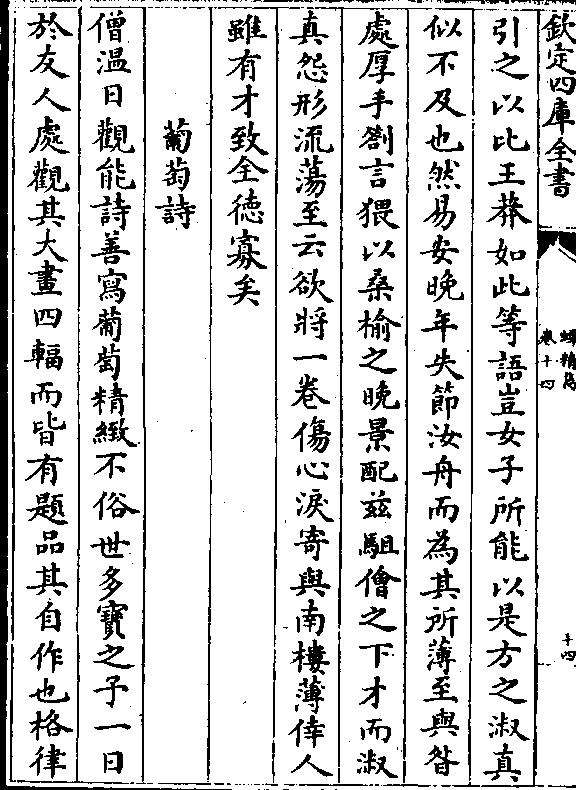 欽定四庫全書
蟫精雋
卷十四
十四
引之以比王莽如此等語豈女子所能以是方之淑真
似不及也然易安晚年失節汝舟而為其所薄至與昝
處厚手劄言猥以桑榆之晚景配兹駔儈之下才而淑
真怨形流蕩至云欲將一卷傷心淚寄與南樓薄倖人
雖有才致全徳寡矣
葡萄詩
僧温日觀能詩善寫葡萄精緻不俗世多寶之予一日
於友人處觀其大畫四輻而皆有題品其自作也格律